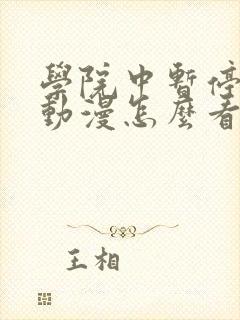 學院中暫停
動漫怎麼看
王相